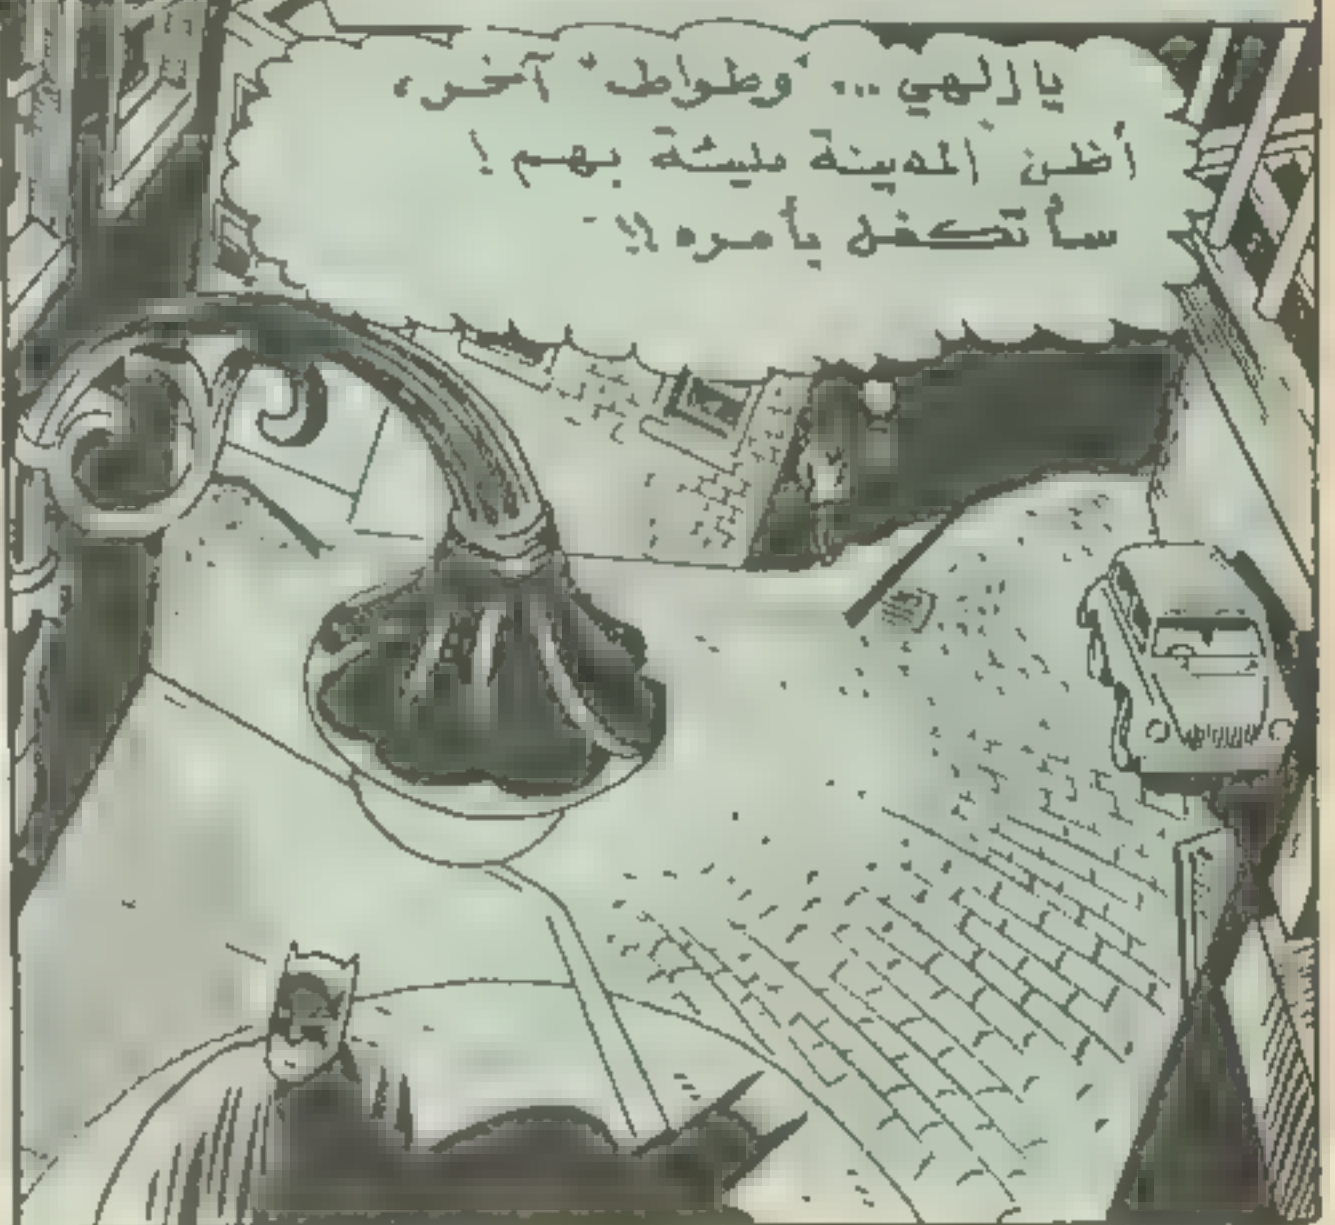 يا إلهي... "وطواط" آخر،
أظن المدينة مليئة بهم!
سأتكفل بأمره!!